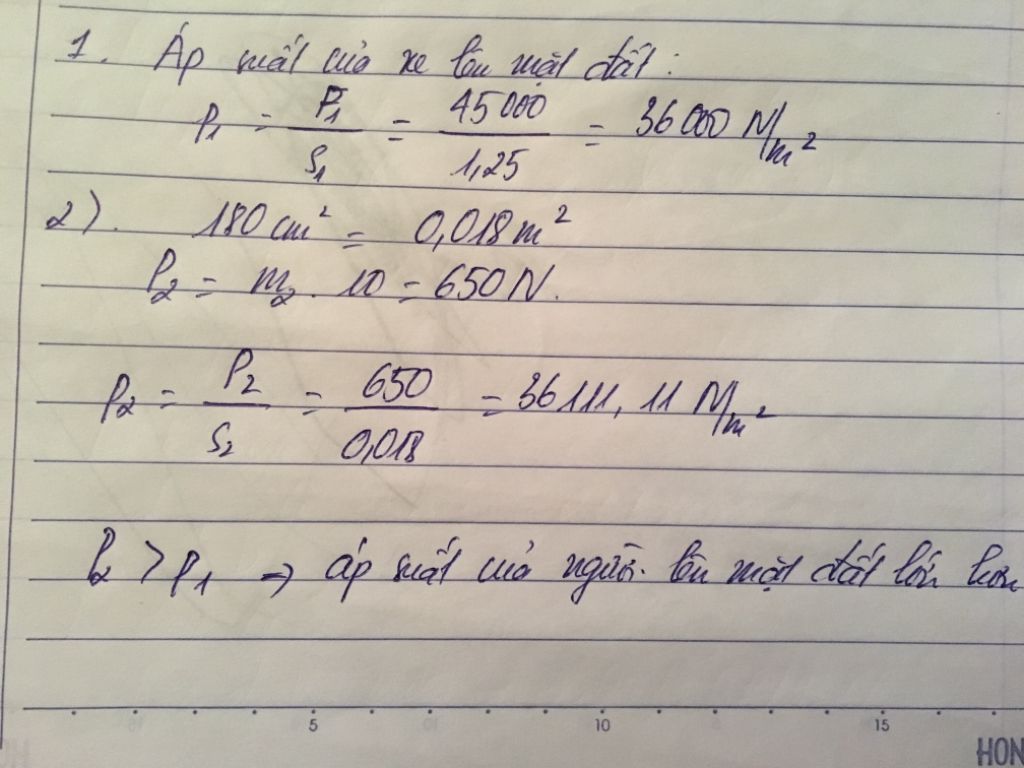 1. Áp suất của xe lên mặt đất:
p₁ = P₁/S₁ = 45000/1,25 = 36000 N/m²
2). 180 cm² = 0,018 m²
P₂ = m₂. 10 = 650 N.
p₂ = P₂/S₂ = 650/0,018 = 36111,11 N/m²
p₂ > p₁ => áp suất của người lên mặt đất lớn hơn
5 10 15
HON